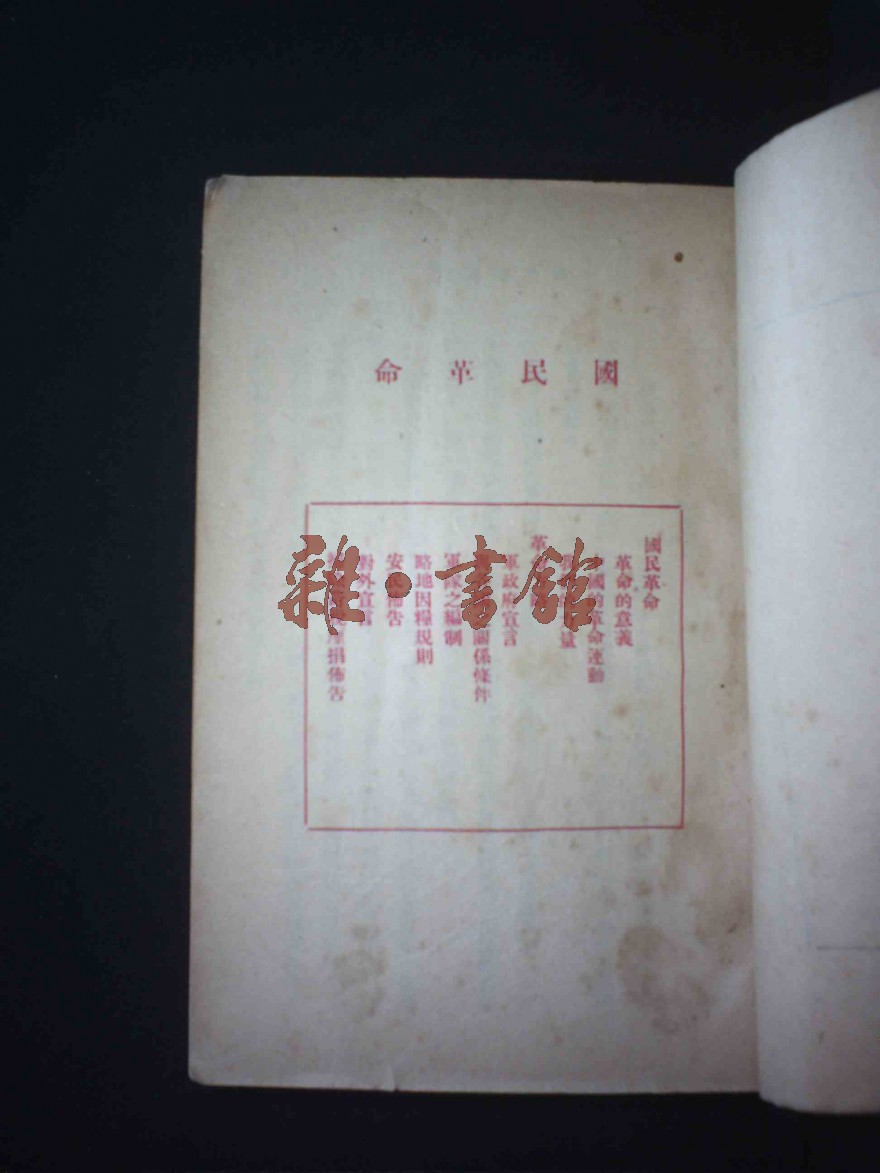 國民革命
國民革命
革命的意義
國的革命運動
量
革
軍政府宣言
關係條件
軍隊之編制
略地因糧規則
安民佈告
對外宣言
捐佈告
雜·書館